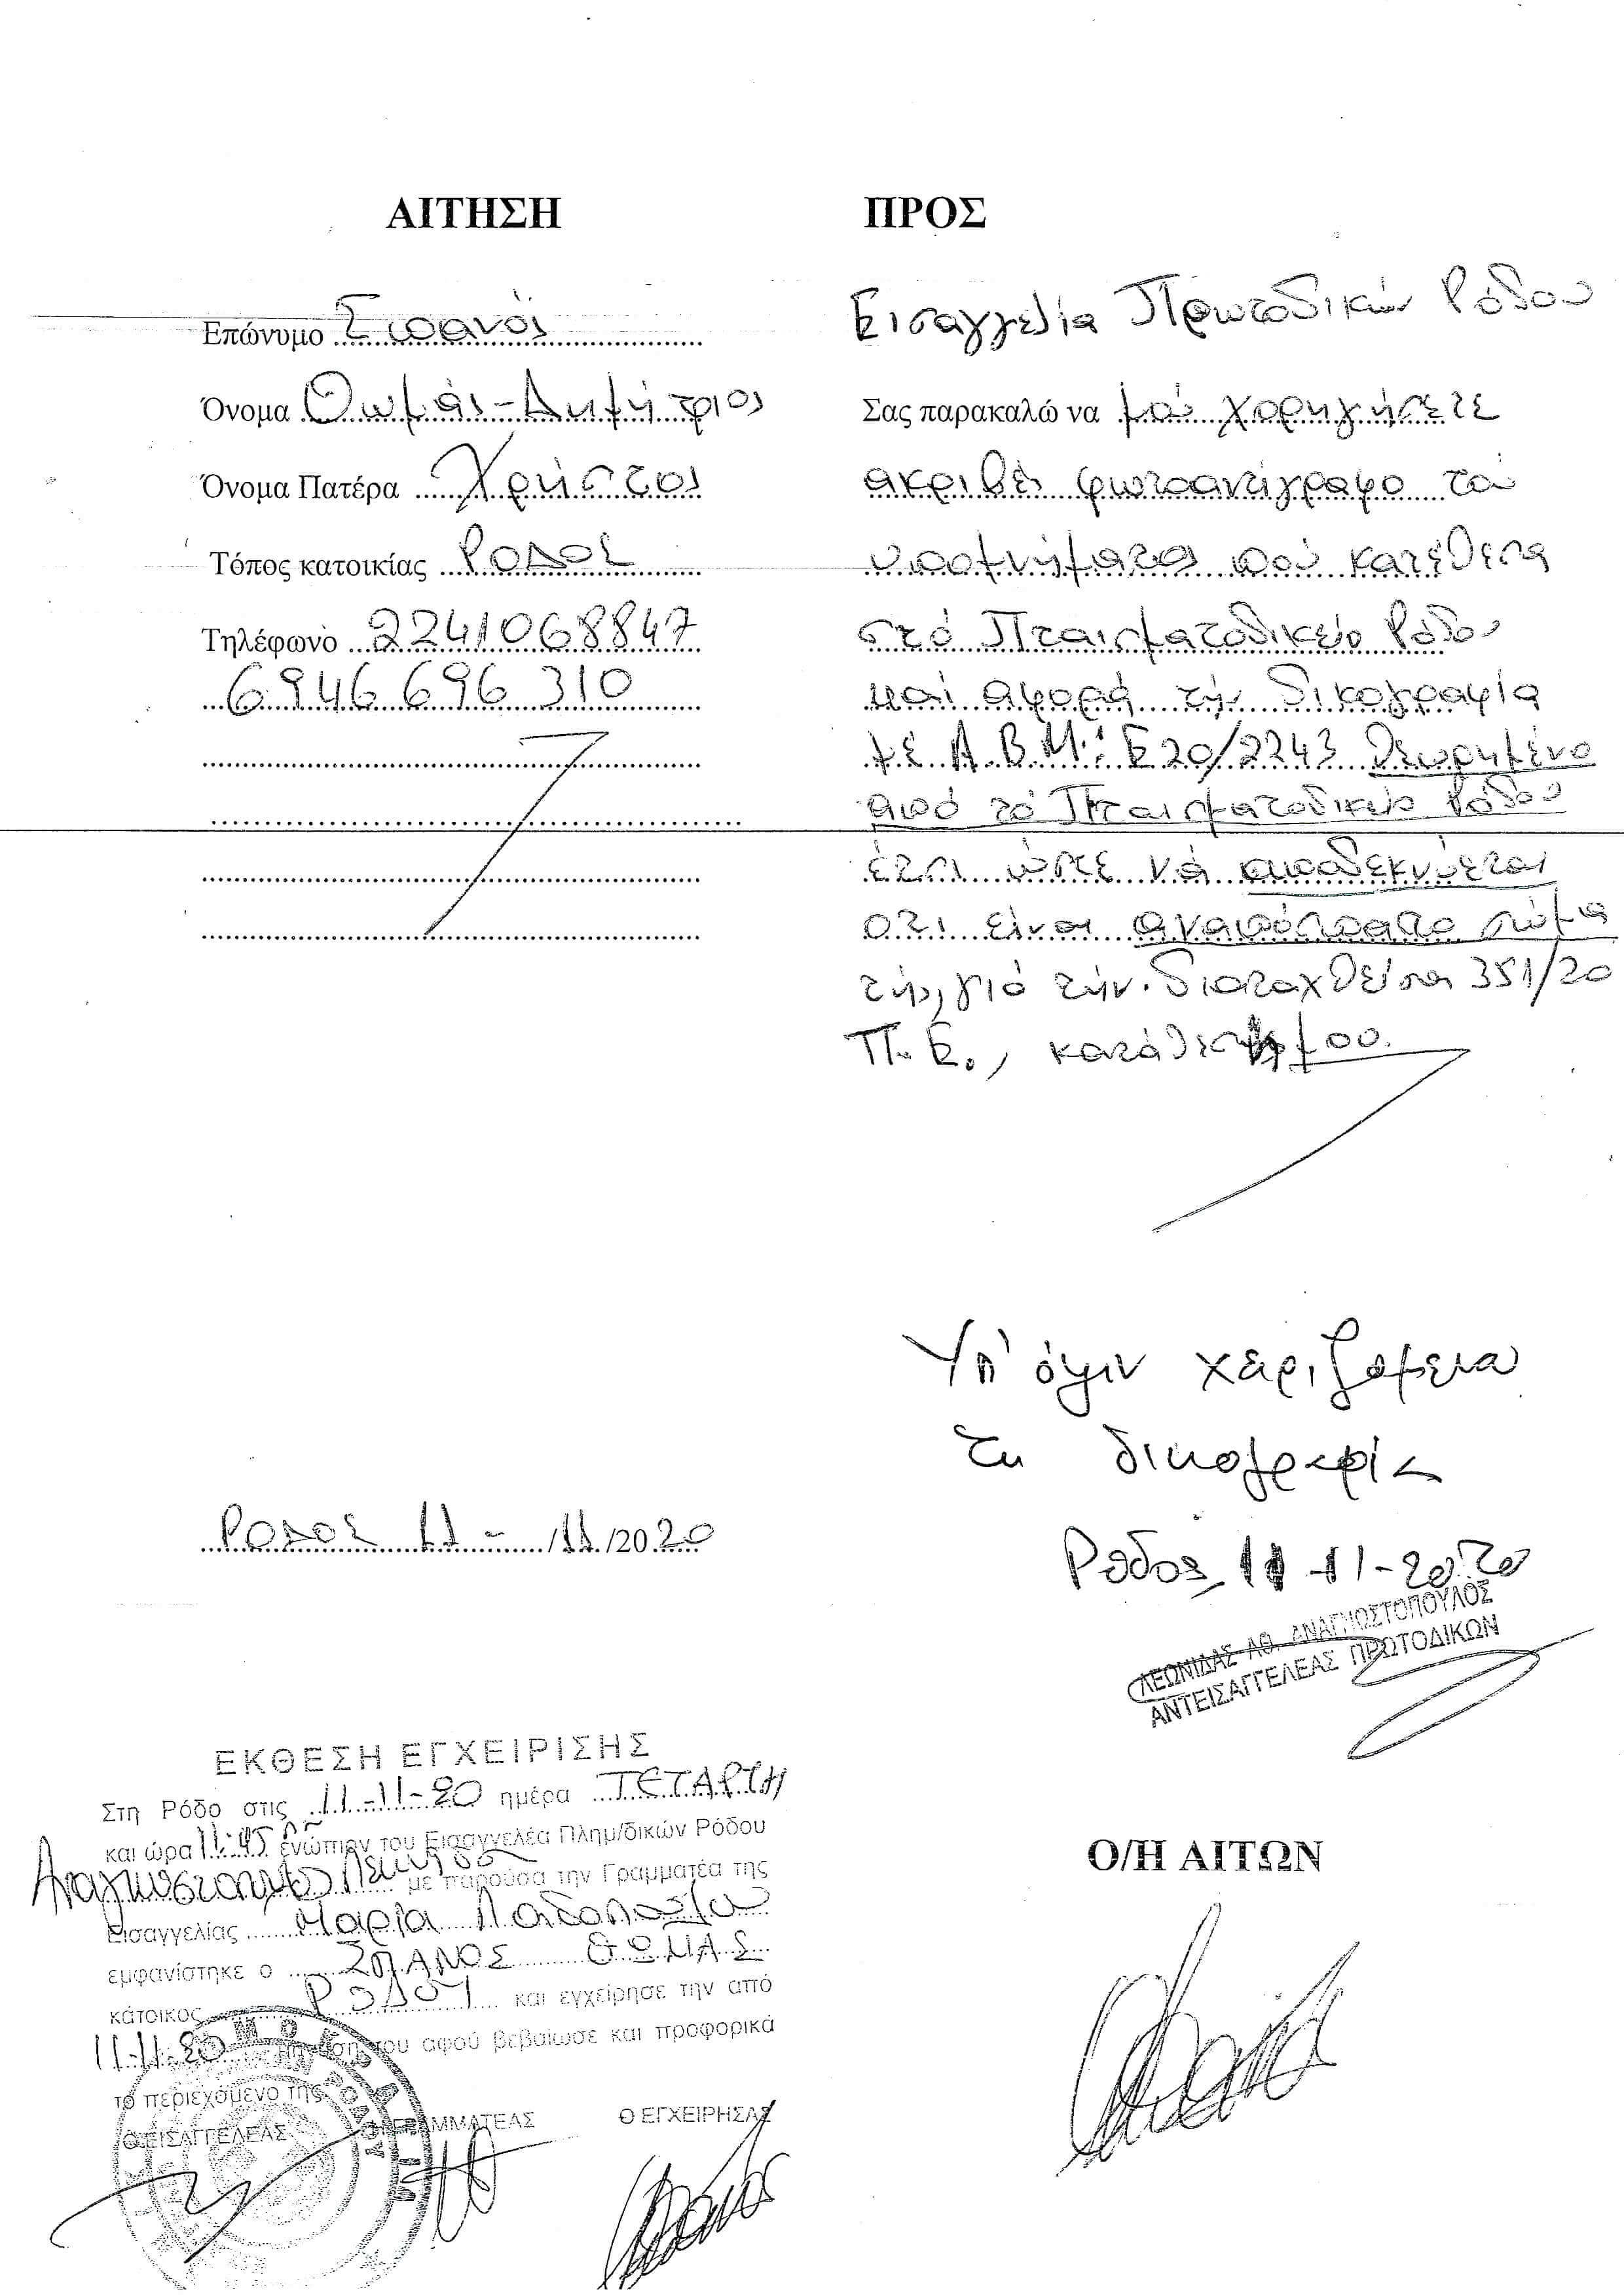 ΑΙΤΗΣΗ
Επώνυμο Σπανός
Όνομα Θωμάς-Δημήτριος
Όνομα Πατέρα Χρήστος
Τόπος κατοικίας ΡΟΔΟΣ
Τηλέφωνο 2241068847
6946 696 310
ΡΟΔΟΣ 11 - /11/2020
ΠΡΟΣ
Εισαγγελία Πρωτοδικών Ρόδου
Σας παρακαλώ να μού χορηγήσετε
ακριβές φωτοαντίγραφο τού
υπομνήματος πού κατέθεσα
στό Πταισματοδικείο Ρόδου
καί αφορά τήν δικογραφία
μέ Α.Β.Μ.: Ε20/2243 θεωρημένο
από τό Πταισματοδικείο Ρόδου
έτσι ώστε νά αποδεκνύεται
ότι είναι αναπόσπαστο σώμα
τής, γιό τήν διαταχθείσα 351/20
Π.Ε., κατάθεσής μου.
Υπ' όψιν χειριζομένου
τη δικογραφία
Ρόδος 11-11-2020
ΛΕΩΝΙΔΑΣ ΑΘ. ΑΝΑΓΝΩΣΤΟΠΟΥΛΟΣ
ΑΝΤΕΙΣΑΓΓΕΛΕΑΣ ΠΡΩΤΟΔΙΚΩΝ
Ο/Η ΑΙΤΩΝ
ΕΚΘΕΣΗ ΕΓΧΕΙΡΙΣΗΣ
Στη Ρόδο στις 11-11-20 ημέρα ΤΕΤΑΡΤΗ
και ώρα 11:45 ενώπιον του Εισαγγελέα Πλημ/δικών Ρόδου
Αναγνωστόπουλο Λεωνίδα με παρούσα την Γραμματέα της
Εισαγγελίας Μαρία
εμφανίστηκε ο ΣΠΑΝΟΣ ΘΩΜΑΣ
κάτοικος ΡΟΔΟΥ και εγχείρησε την από
11-11-20 αίτηση του αφού βεβαίωσε και προφορικά
το περιεχόμενο της
Ο ΕΙΣΑΓΓΕΛΕΑΣ ΓΡΑΜΜΑΤΕΑΣ Ο ΕΓΧΕΙΡΗΣΑΣ